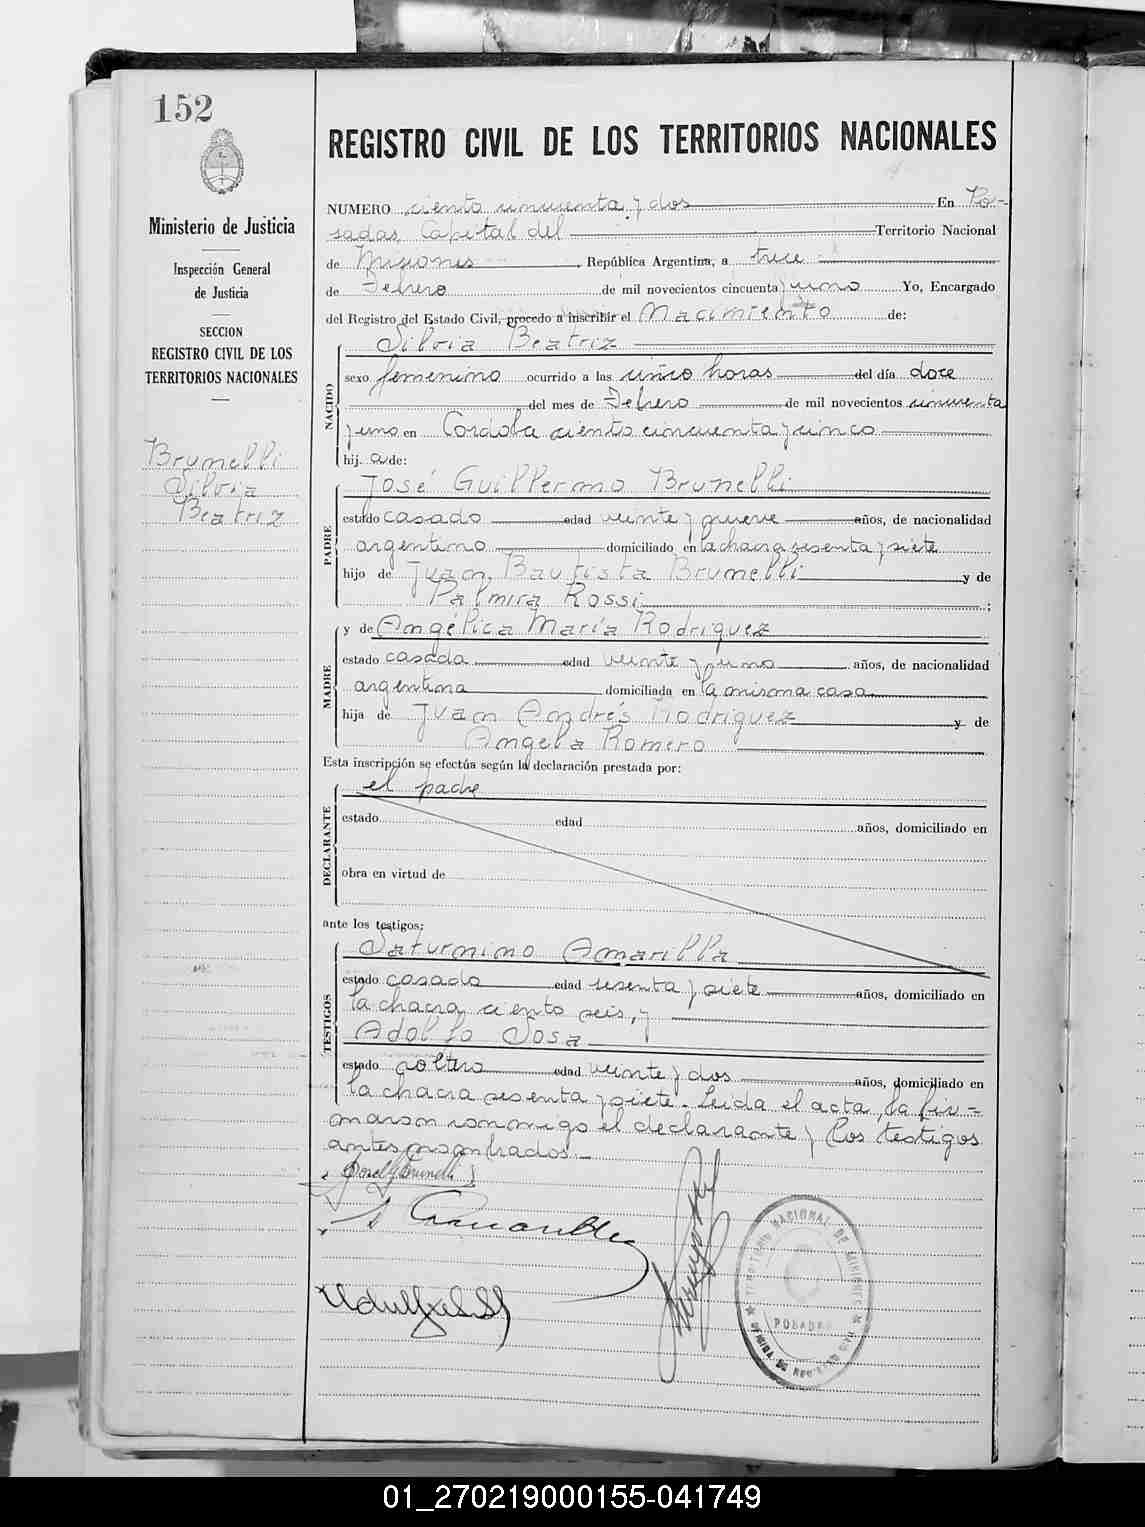 152
REGISTRO CIVIL DE LOS TERRITORIOS NACIONALES
Ministerio de Justicia
Inspección General
de Justicia
SECCION
REGISTRO CIVIL DE LOS
TERRITORIOS NACIONALES
Brunelli
Silvia
Beatriz
NUMERO ciento cincuenta y dos En Po-
sadas, Capital del Territorio Nacional
de Misiones, República Argentina, a trece
de Febrero de mil novecientos cincuenta y uno Yo, Encargado
del Registro del Estado Civil, procedo a inscribir el Nacimiento de:
Silvia Beatriz
NACIDO
sexo femenino ocurrido a las cinco horas del día doce
del mes de Febrero de mil novecientos cincuenta
y uno en Cordoba ciento cincuenta y cinco
hij a de:
José Guillermo Brunelli
PADRE
estado casado edad veinte y nueve años, de nacionalidad
argentino domiciliado en la chacra sesenta y siete
hijo de Juan Bautista Brunelli y de
Palmira Rossi ;
y de Angélica María Rodriguez
MADRE
estado casada edad veinte y uno años, de nacionalidad
argentina domiciliada en la misma casa
hija de Juan Andrés Rodriguez y de
Angela Romero
Esta inscripción se efectúa según la declaración prestada por:
el padre
DECLARANTE
estado edad años, domiciliado en
obra en virtud de
ante los testigos:
Saturnino Amarilla
TESTIGOS
estado casado edad sesenta y siete años, domiciliado en
la chacra ciento seis, y
Adolfo Sosa
estado soltero edad veinte y dos años, domiciliado en
la chacra sesenta y siete. Leida el acta, la fir=
maron conmigo el declarante y los testigos
antes nombrados.-
TERRITORIO NACIONAL DE MISIONES
POSADAS
01_270219000155-041749